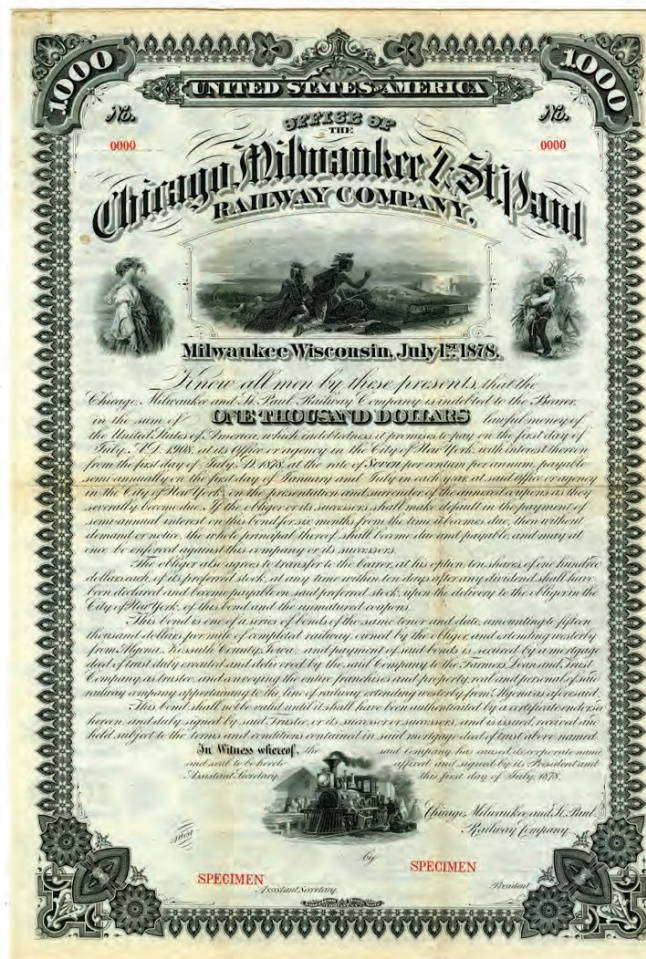 1000 1000
UNITED STATES OF AMERICA
No. No.
0000 0000
OFFICE OF
THE
Chicago, Milwaukee & St. Paul
RAILWAY COMPANY.
Milwaukee Wisconsin, July 1st. 1878.
Know all men by these presents, that the
Chicago, Milwaukee and St. Paul Railway Company is indebted to the Bearer
in the sum of ONE THOUSAND DOLLARS lawful money of
the United States of America, which indebtedness it promises to pay on the first day of
July, A.D. 1908, at its Office or agency in the City of New York, with interest thereon
from the first day of July, A.D. 1878, at the rate of Seven per centum per annum, payable
semi annually on the first day of January and July in each year at said Office or agency
in the City of New York, on the presentation and surrender of the annexed coupons as they
severally become due. If the obligor or its successors shall make default in the payment of
semi-annual interest on this bond for six months from the time it becomes due, then without
demand or notice, the whole principal thereof shall become due and payable, and may at
once be enforced against this company or its successors.
The obligor also agrees to transfer to the bearer, at his option, ten shares of one hundred
dollars each, of its preferred stock, at any time within ten days after any dividend shall have
been declared and become payable on said preferred stock, upon the delivery to the obligor in the
City of New York, of this bond and the unmatured coupons.
This bond is one of a series of bonds of the same tenor and date, amounting to fifteen
thousand dollars per mile of completed railway, owned by the obligor and extending westerly
from Algona, Kossuth County, Iowa; and payment of said bonds is secured by a mortgage
deed of trust duly executed and delivered by the said Company to the Farmers Loan and Trust
Company, as trustee, and conveying the entire franchises and property, real and personal of said
railway company appertaining to the line of railway extending westerly from Algona as aforesaid.
This bond shall not be valid until it shall have been authenticated by a certificate endorsed
hereon, and duly signed by said Trustee, or its successor or successors, and is issued, received and
held subject to the terms and conditions contained in said mortgage deed of trust above named.
In Witness whereof, the said Company has caused its corporate name
and seal to be hereto affixed and signed by its President and
Assistant Secretary, this first day of July, 1878.
Chicago, Milwaukee and St. Paul
Railway Company
Attest
by
SPECIMEN SPECIMEN
Assistant Secretary. President